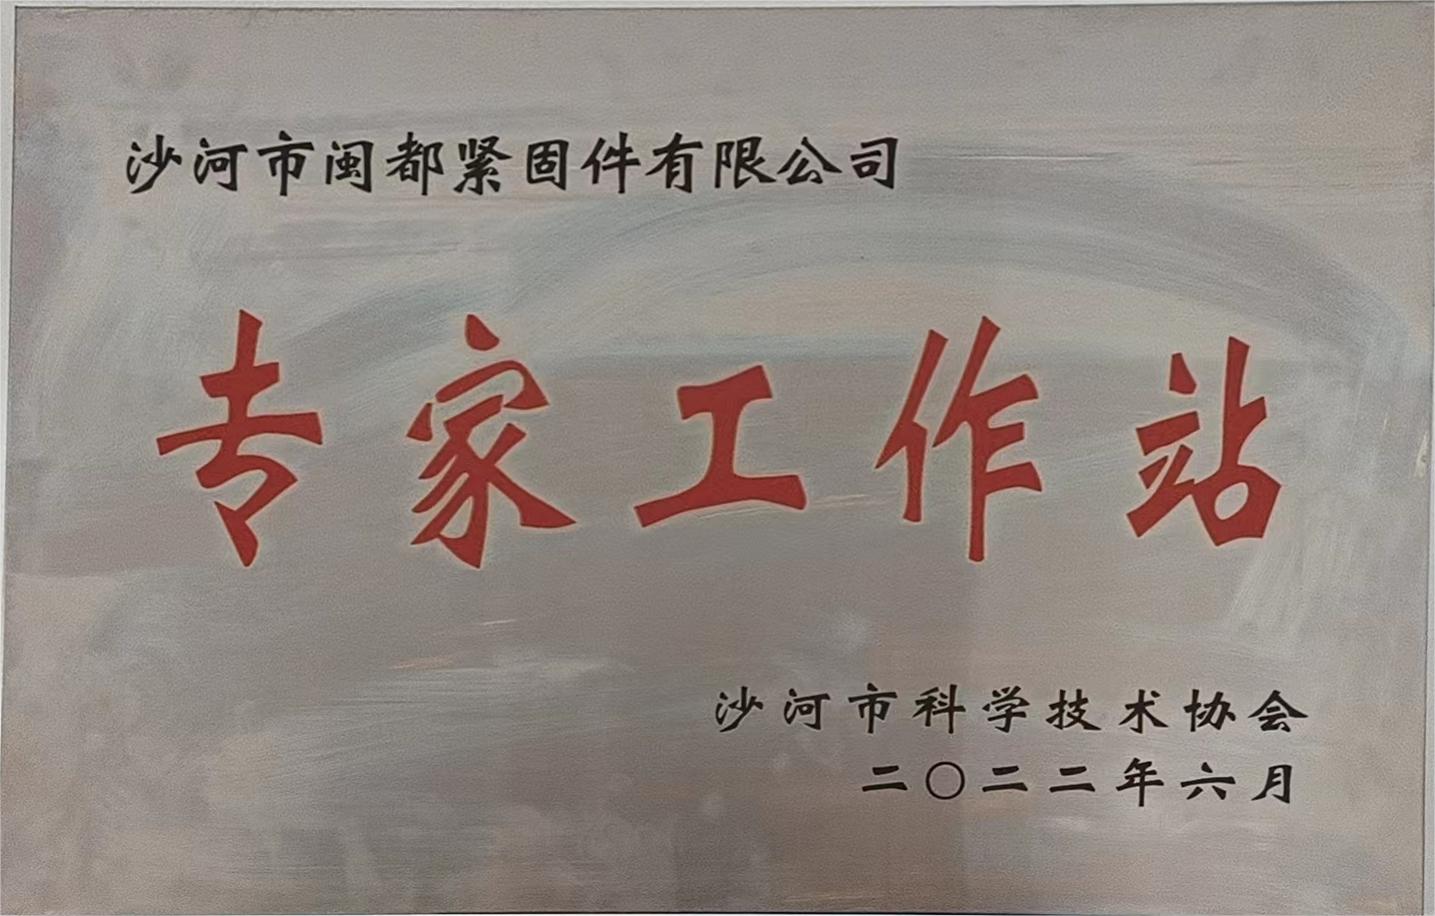 沙河市闽都紧固件有限公司
专家工作站
沙河市科学技术协会
二〇二二年六月